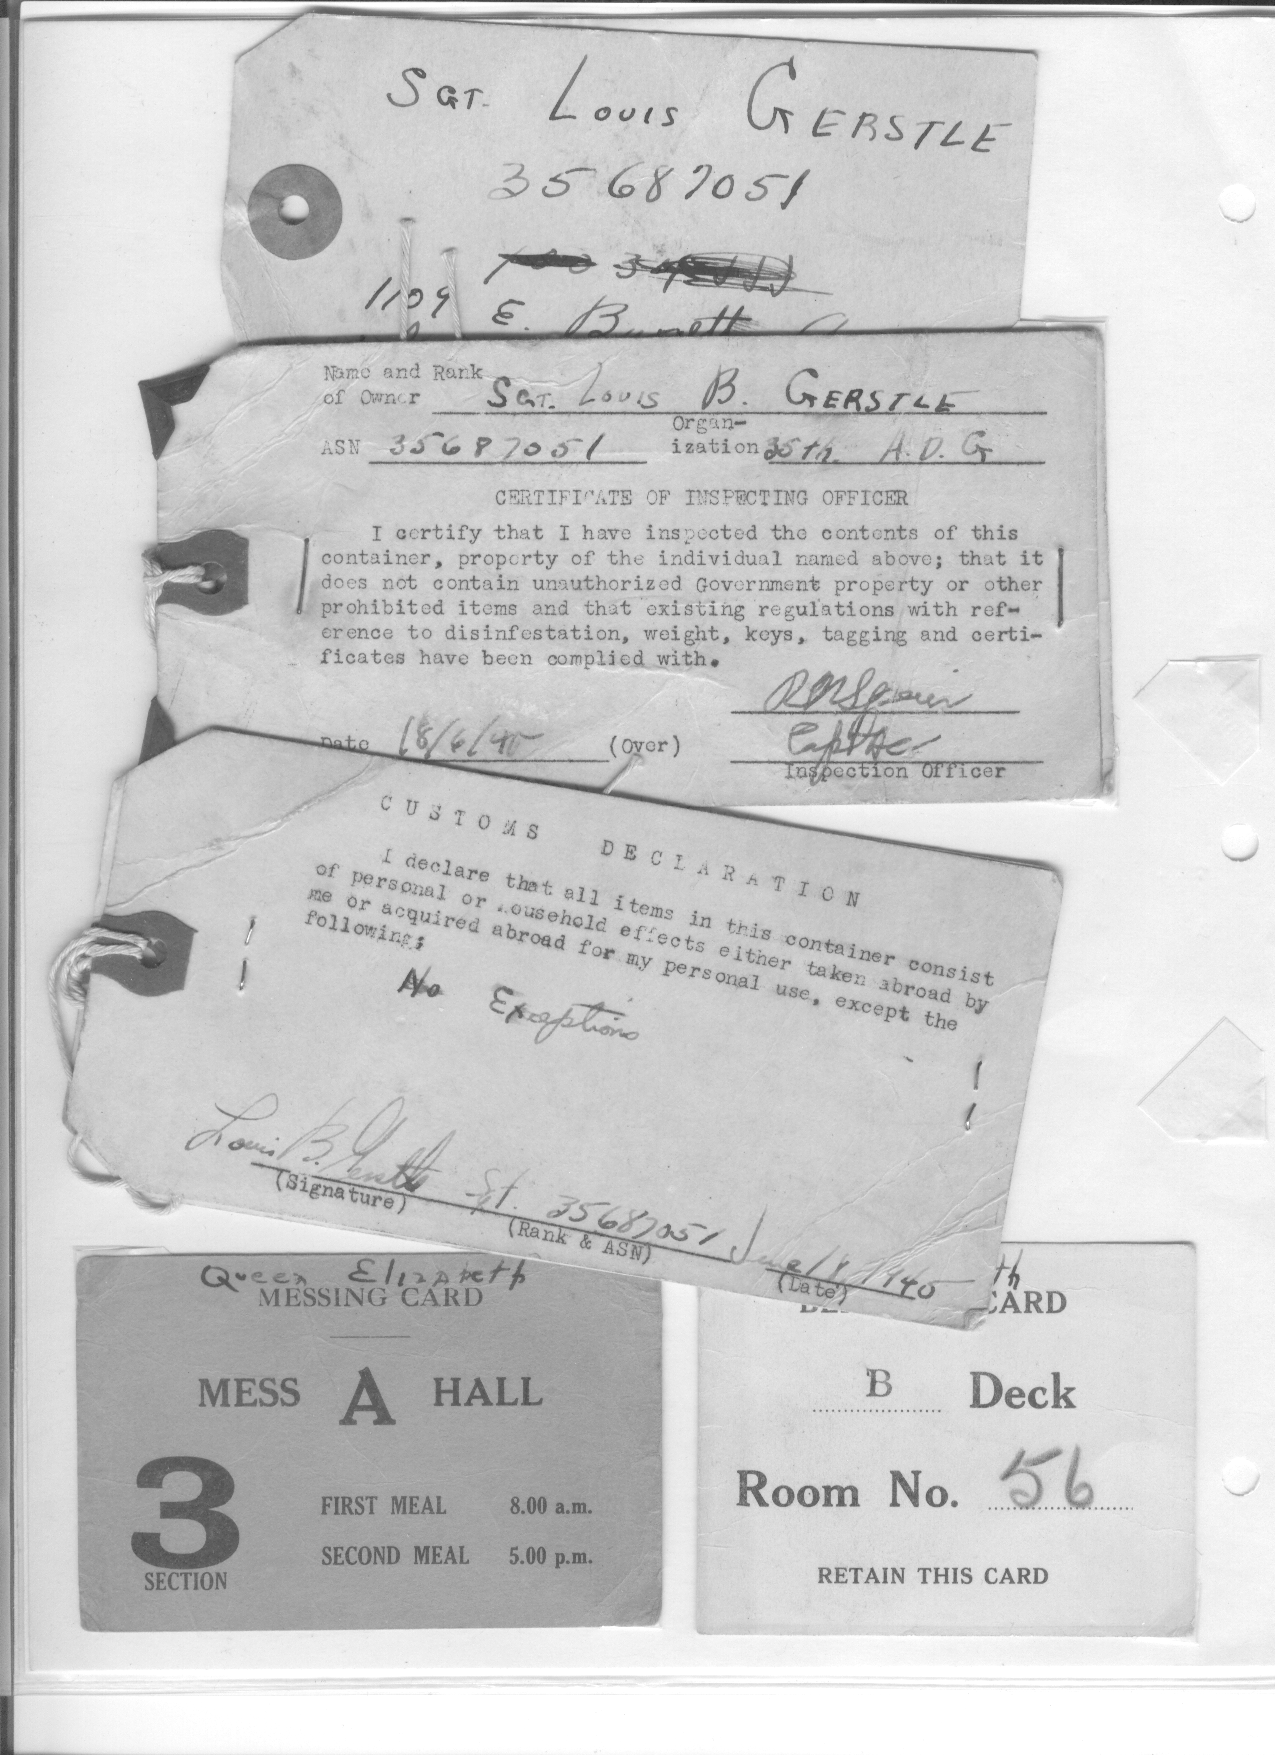 SGT. LOUIS GERSTLE
35687051
1109 E. Burnett
Name and Rank
of Owner SGT. LOUIS B. GERSTLE
Organ-
ASN 35687051 ization 35th. A.D.G
CERTIFICATE OF INSPECTING OFFICER
I certify that I have inspected the contents of this
container, property of the individual named above; that it
does not contain unauthorized Government property or other
prohibited items and that existing regulations with ref-
erence to disinfestation, weight, keys, tagging and certi-
ficates have been complied with.
Date 18/6/45 (Over)
Inspection Officer
CUSTOMS DECLARATION
I declare that all items in this container consist
of personal or household effects either taken abroad by
me or acquired abroad for my personal use, except the
following;
No Exceptions
Louis B. Gerstle Sgt. 35687051 June 18, 1945
(Signature) (Rank & ASN) (Date)
Queen Elizabeth
MESSING CARD
MESS A HALL
3
SECTION
FIRST MEAL 8.00 a.m.
SECOND MEAL 5.00 p.m.
th
CARD
B Deck
Room No. 56
RETAIN THIS CARD